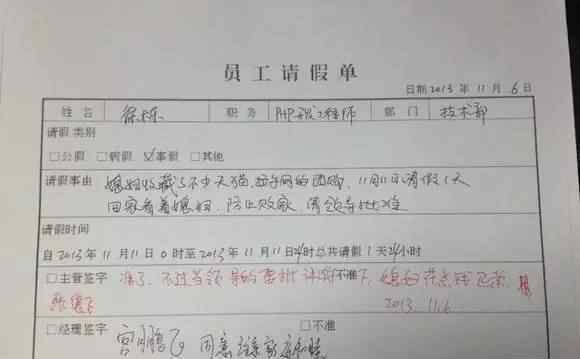 员工请假单
日期 2013 年 11 月 6 日
姓名 徐栋 职务 PHP开发工程师 部门 技术部
请假 类别
□公假 □病假 ☑事假 □其他
请假事由 媳妇收藏了不少天猫、网的团购、11月11日请假1天
回家看着媳妇、防止败家、请领导批准
请假时间
自 2013 年 11 月 11 日 0 时至 2013 年 11 月 11 日 24 时总共请假 1 天 24 小时
□主管签字 准了、不过当领导的要批评 □不准 下、媳妇花点钱
2013.11.6
□经理签字 宫鹏飞 同意 □不准